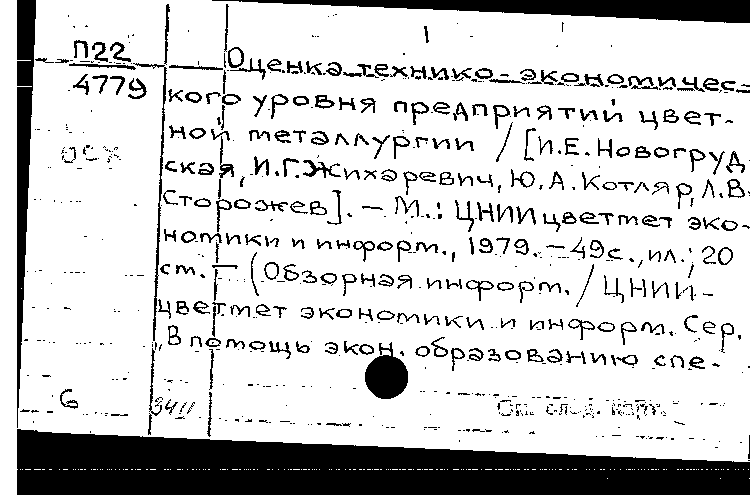 1
П22
4779
осх
Оценка технико-экономичес-
кого уровня предприятий цвет-
ной металлургии / [И.Е.Новогруд
ская, И.Г.Жихаревич, Ю.А.Котляр, Л.В.
Сторожев]. — М.: ЦНИИцветмет эко-
номики и информ., 1979. — 49с., ил.; 20
см. — (Обзорная информ. / ЦНИИ-
цветмет экономики и информ. Сер.
„В помощь экон. образованию спе-
6
34 II
См. след. карт.